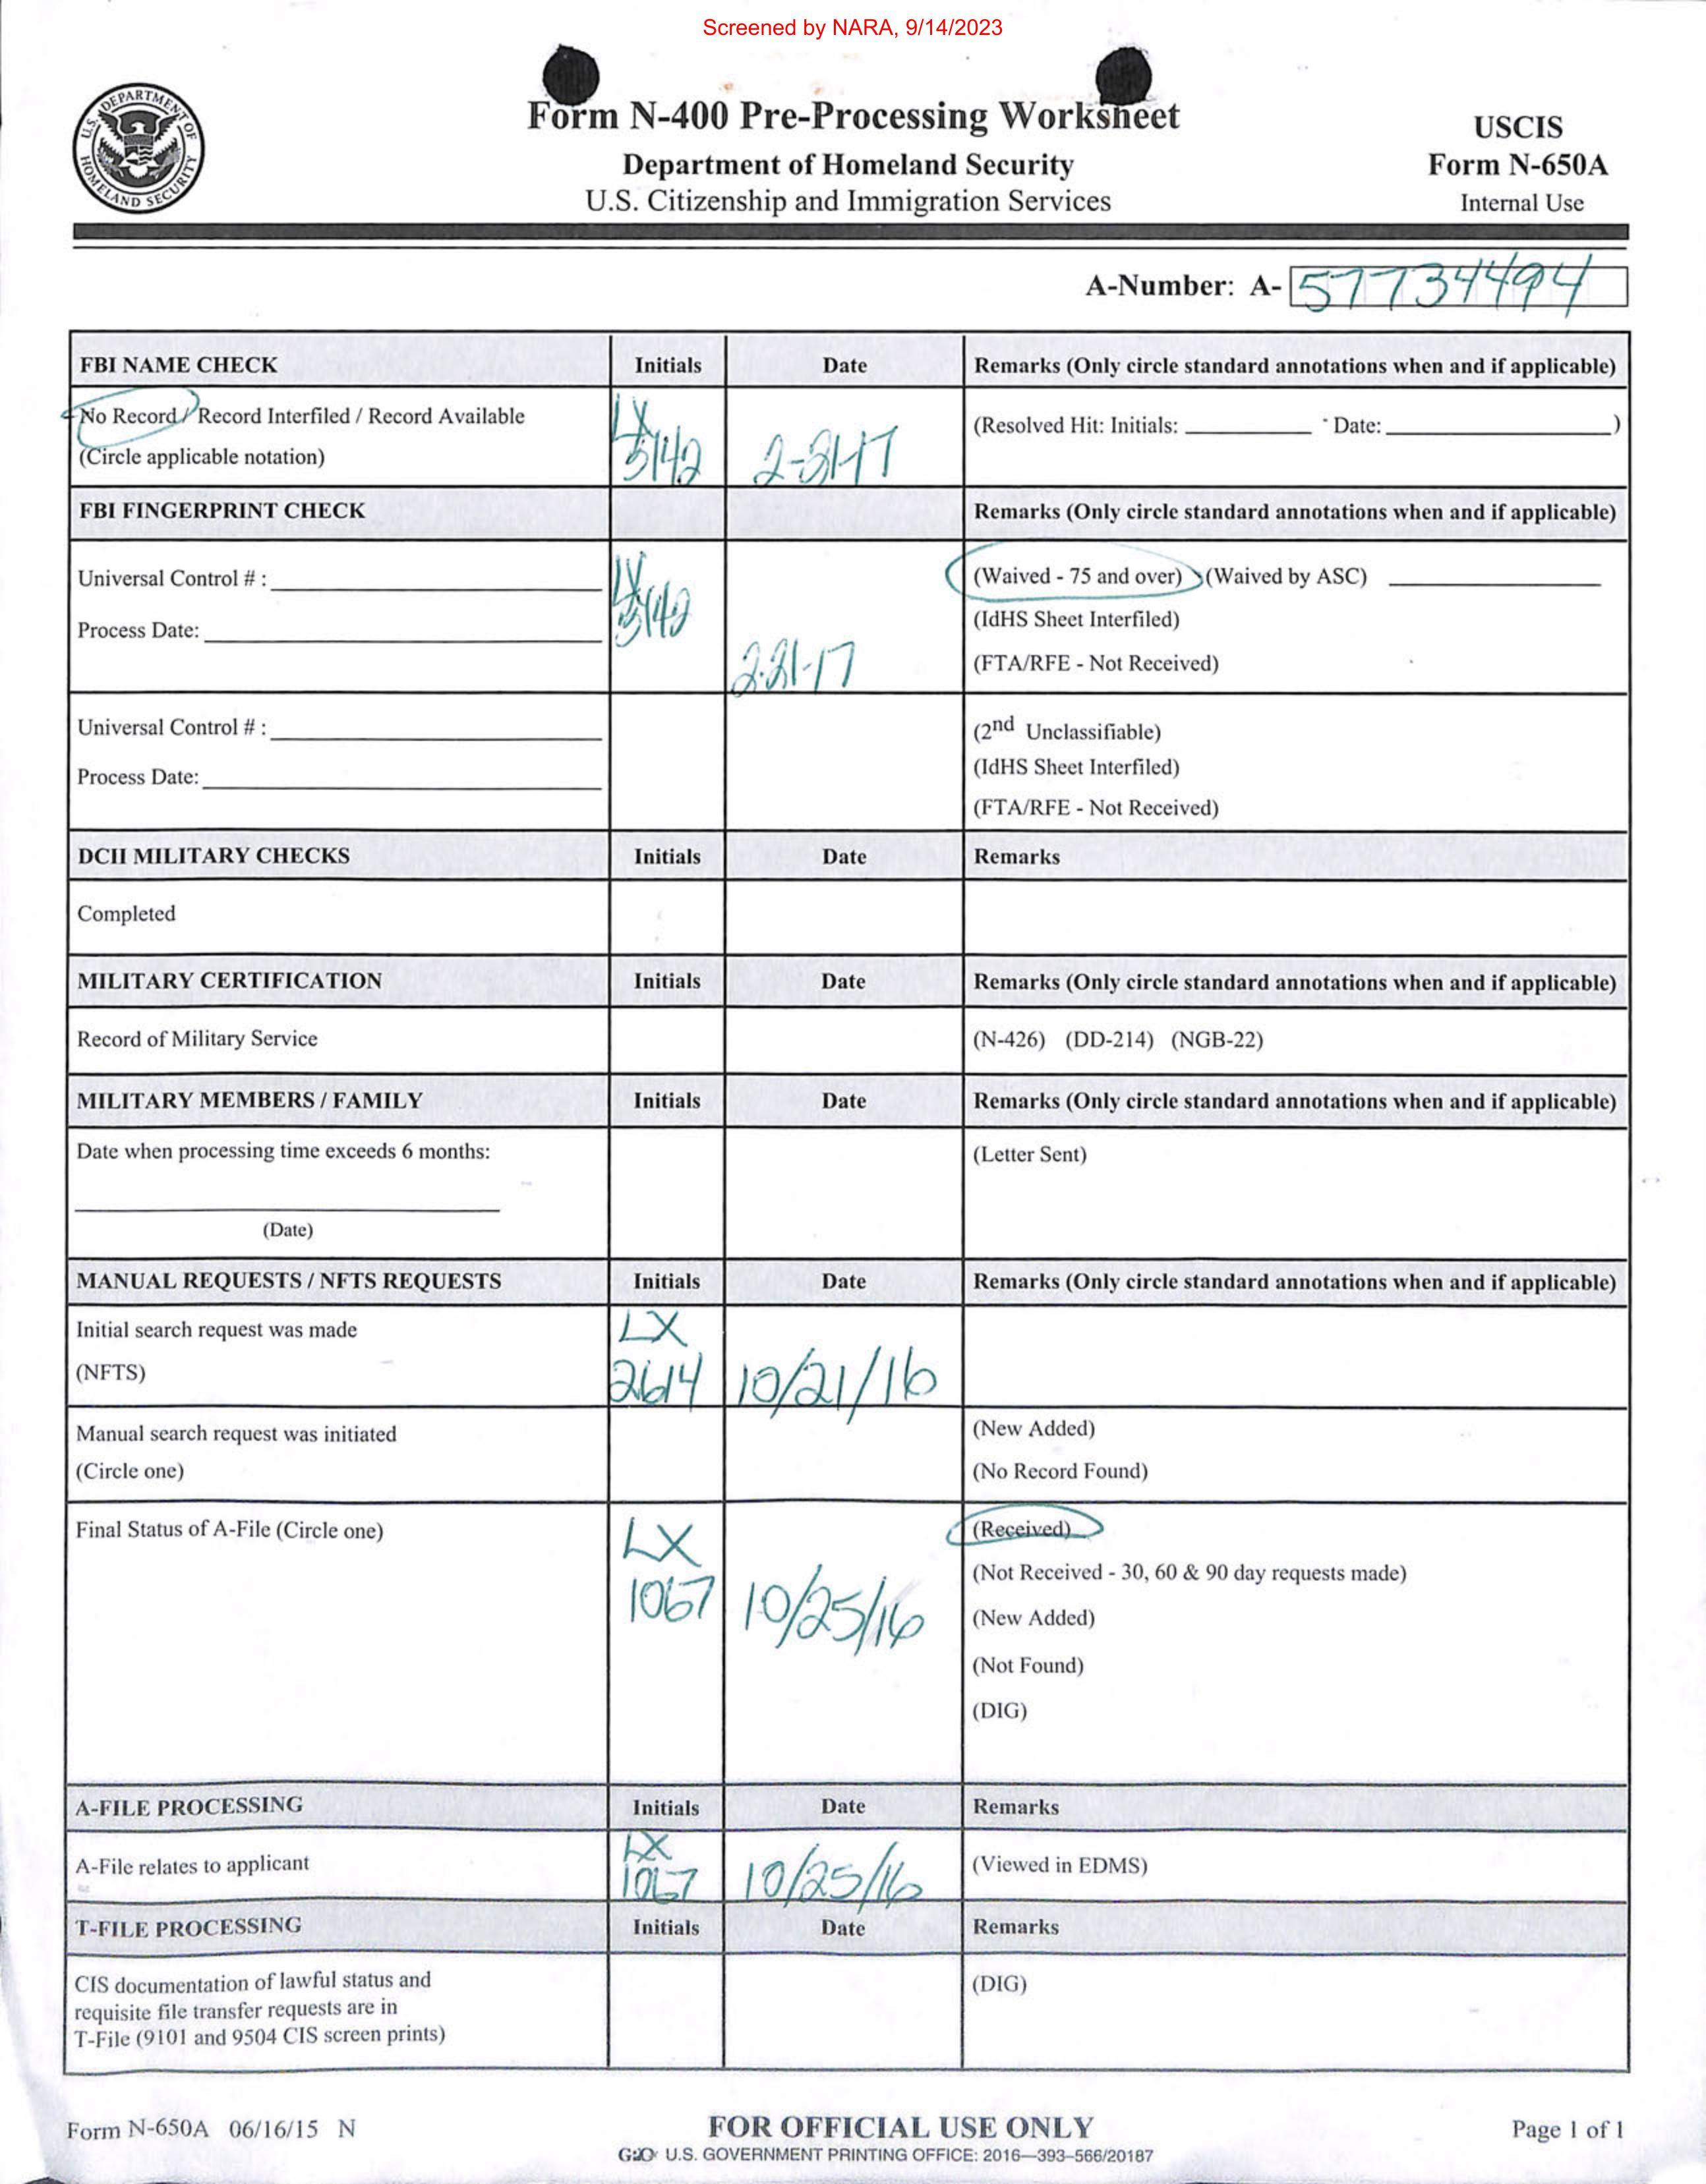 Screened by NARA, 9/14/2023
U.S. DEPARTMENT OF HOMELAND SECURITY
Form N-400 Pre-Processing Worksheet
Department of Homeland Security
U.S. Citizenship and Immigration Services
USCIS
Form N-650A
Internal Use
A-Number: A- 57734494
FBI NAME CHECK Initials Date Remarks (Only circle standard annotations when and if applicable)
No Record / Record Interfiled / Record Available
(Circle applicable notation)
LX
3142 2-21-17
(Resolved Hit: Initials: Date: )
FBI FINGERPRINT CHECK Remarks (Only circle standard annotations when and if applicable)
Universal Control # :
Process Date:
LX
3142
2-21-17
(Waived - 75 and over) (Waived by ASC)
(IdHS Sheet Interfiled)
(FTA/RFE - Not Received)
Universal Control # :
Process Date:
(2nd Unclassifiable)
(IdHS Sheet Interfiled)
(FTA/RFE - Not Received)
DCII MILITARY CHECKS Initials Date Remarks
Completed
MILITARY CERTIFICATION Initials Date Remarks (Only circle standard annotations when and if applicable)
Record of Military Service (N-426) (DD-214) (NGB-22)
MILITARY MEMBERS / FAMILY Initials Date Remarks (Only circle standard annotations when and if applicable)
Date when processing time exceeds 6 months:
(Date)
(Letter Sent)
MANUAL REQUESTS / NFTS REQUESTS Initials Date Remarks (Only circle standard annotations when and if applicable)
Initial search request was made
(NFTS)
LX
2614 10/21/16
Manual search request was initiated
(Circle one)
(New Added)
(No Record Found)
Final Status of A-File (Circle one)
LX
1067 10/25/16
(Received)
(Not Received - 30, 60 & 90 day requests made)
(New Added)
(Not Found)
(DIG)
A-FILE PROCESSING Initials Date Remarks
A-File relates to applicant
LX
1067 10/25/16
(Viewed in EDMS)
T-FILE PROCESSING Initials Date Remarks
CIS documentation of lawful status and
requisite file transfer requests are in
T-File (9101 and 9504 CIS screen prints)
(DIG)
Form N-650A 06/16/15 N
FOR OFFICIAL USE ONLY
Page 1 of 1
U.S. GOVERNMENT PRINTING OFFICE: 2016—393–566/20187